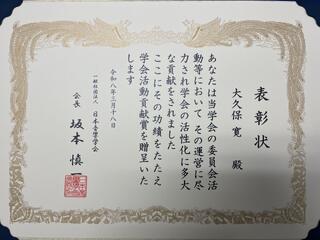 表彰状
大久保 寛 殿
あなたは当学会の委員会活
動等において その運営に尽
力され学会の活性化に多大
な貢献をされました
ここにその功績をたたえ
学会活動貢献賞を贈呈いた
します
令和八年三月十八日
一般社団法人 日本音響学会
会長 坂本慎一